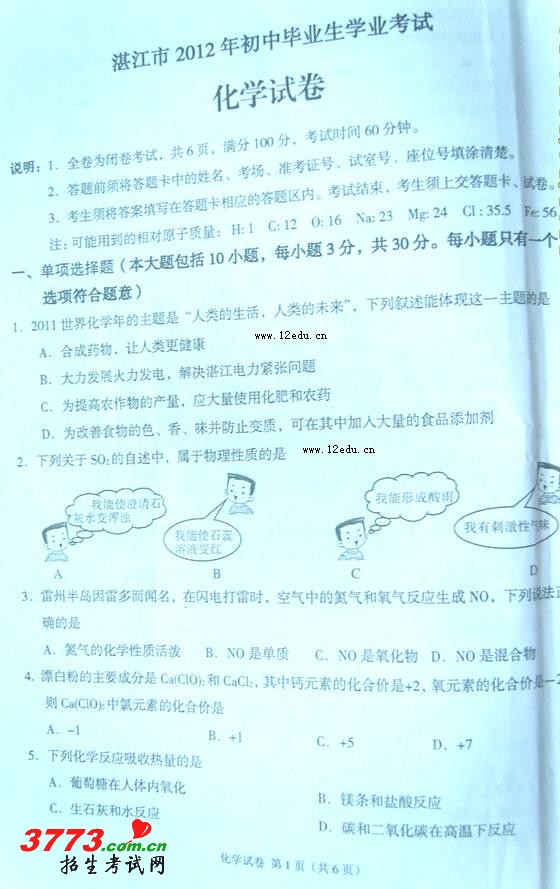 湛江市 2012 年初中毕业生学业考试
化学试卷
说明：1. 全卷为闭卷考试，共 6 页，满分 100 分，考试时间 60 分钟。
2. 答题前须将答题卡中的姓名、考场、准考证号、试室号、座位号填涂清楚。
3. 考生须将答案填写在答题卡相应的答题区内。考试结束，考生须上交答题卡、试卷。
注：可能用到的相对原子质量：H: 1 C: 12 O: 16 Na: 23 Mg: 24 Cl : 35.5 Fe: 56
一、单项选择题（本大题包括 10 小题，每小题 3 分，共 30 分。每小题只有一个
选项符合题意）
1. 2011 世界化学年的主题是“人类的生活，人类的未来”，下列叙述能体现这一主题的是
A．合成药物，让人类更健康
www.12edu.cn
B．大力发展火力发电，解决湛江电力紧张问题
C．为提高农作物的产量，应大量使用化肥和农药
D．为改善食物的色、香、味并防止变质，可在其中加入大量的食品添加剂
2. 下列关于 SO₂的自述中，属于物理性质的是
www.12edu.cn
我能使澄清石
灰水变浑浊
我能使石蕊
溶液变红
我能形成酸雨
我有刺激性气味
A B C D
3. 雷州半岛因雷多而闻名，在闪电打雷时，空气中的氮气和氧气反应生成 NO，下列说法正
确的是
A．氮气的化学性质活泼 B．NO 是单质 C．NO 是氧化物 D．NO 是混合物
4. 漂白粉的主要成分是 Ca(ClO)₂ 和 CaCl₂，其中钙元素的化合价是+2，氧元素的化合价是－2
则 Ca(ClO)₂ 中氯元素的化合价是
A．-1 B．+1 C．+5 D．+7
5. 下列化学反应吸收热量的是
A．葡萄糖在人体内氧化 B．镁条和盐酸反应
C．生石灰和水反应 D．碳和二氧化碳在高温下反应
化学试卷 第 1 页（共 6 页）
3773.com.cn
招生考试网